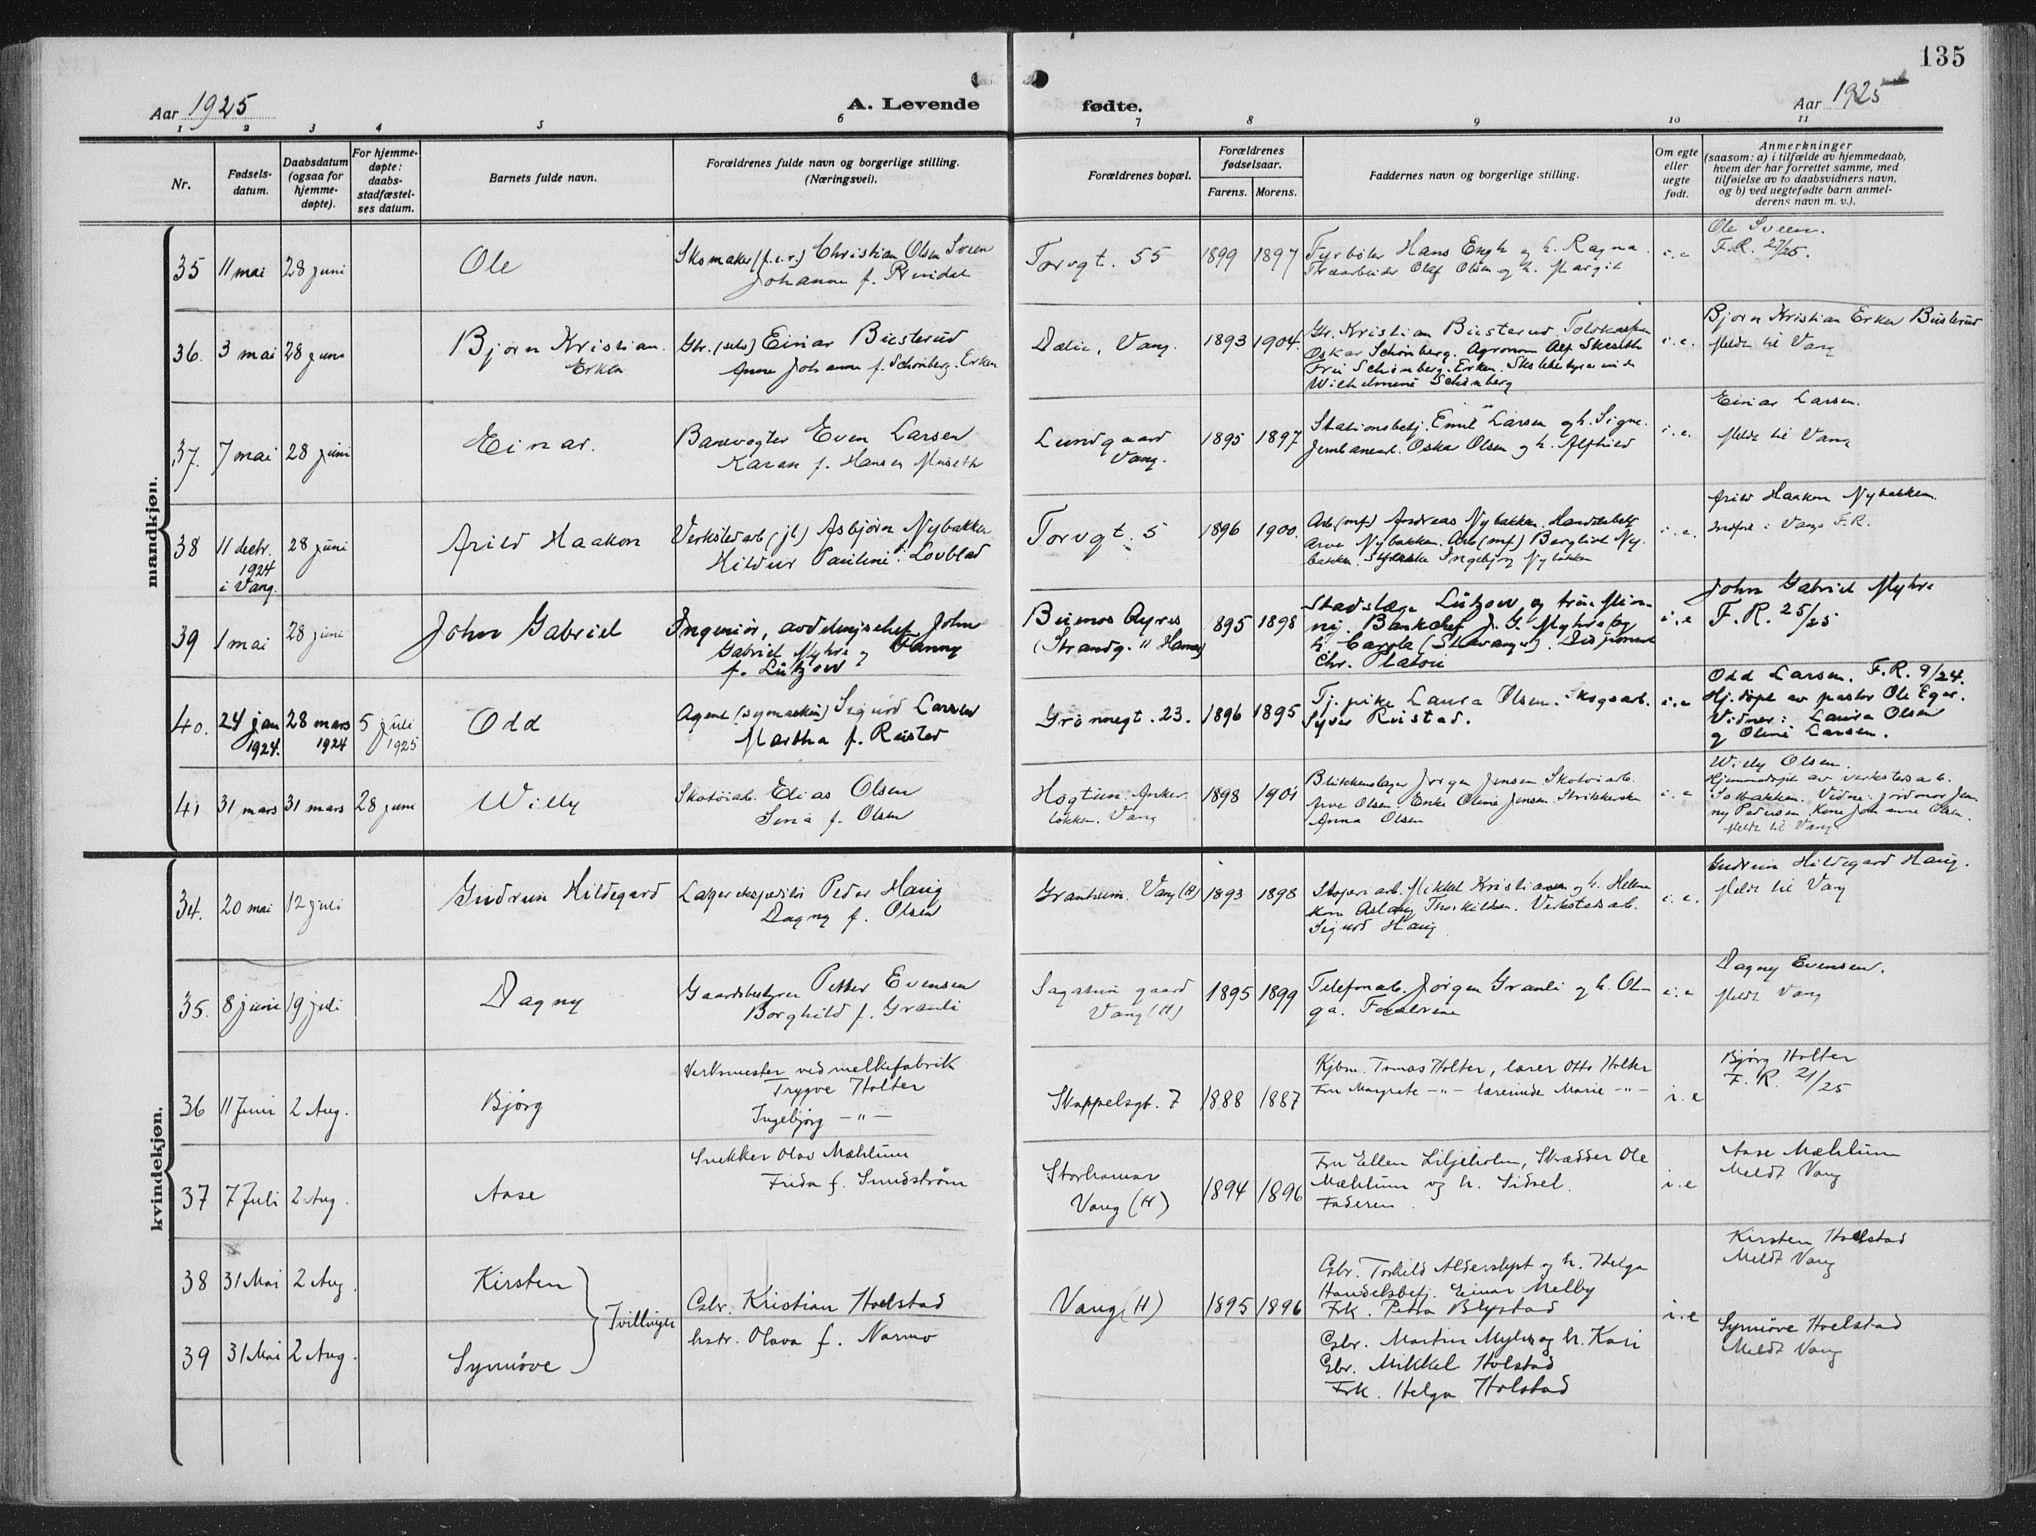 135
Aar 1925
A. Levende fødte.
Aar 1925
1 2 3 4 5 6 7 8 9 10 11
Nr.
Fødsels-
datum.
Daabsdatum
(ogsaa for
hjemme-
døpte).
For hjemme-
døpte:
daabs-
stadfæstel-
ses datum.
Barnets fulde navn.
Forældrenes fulde navn og borgerlige stilling.
(Næringsvei).
Forældrenes bopæl.
Forældrenes
fødselsaar.
Farens. Morens.
Faddernes navn og borgerlige stilling.
Om egte
eller
uegte
født.
Anmerkninger
(saasom: a) i tilfælde av hjemmedaab,
hvem der har forrettet samme, med
tilføielse av to daabsvidners navn,
og b) ved uegtefødte barn anmel-
derens navn m. v.).
mandkjøn.
35 11 mai 28 juni
Ole
Skomaker (f.e.r.) Christian Olsen Sveen
Johanne f. Rindal
Torvgt. 55
1899 1897
Fyrbøter Hans Engh og h. Ragna.
Træarbeider Olaf Olsen og h. Margit
i.e
Ole Sveen.
F.R. 27/25.
36. 3 mai 28 juni
Bjørn Kristian
Erken
Gbr. (selv) Einar Busterud
Anne Johanne f. Schønberg-Erken
Dælie, Vang.
1893 1904.
Gbr. Kristian Busterud. Toldkasserer
Oskar Schønberg. Agronom Alf
Fru Schønberg-Erken. Skolebestyrerinde
Wilhelmine Schønberg
i.e.
Bjørn Kristian Erken Busterud
Meldt til Vang
37. 7 mai 28 juni
Einar.
Banevogter Even Larsen
Karen f. Hansen Museth
Lundgaard
Vang.
1895 1897
Stationsbetj. Emil Larsen og h. Signe.
Jernbanearb. Oskar Olsen og h. Alfhild
i.e.
Einar Larsen.
Meldt til Vang
38 11 decbr. 28 juni
1924
i Vang.
Arild Haakon
Verkstedarb (jb) Asbjørn Nybakken
Hildur Pauline f. Løvblad
Torvgt. 5
1896 1900.
Arb (mf) Andreas Nybakken. Handelsbetj.
Arve Nybakken. Arb (mf) Bergliot Ny-
bakken. Ingebjørg Nybakken
i.e.
Arild Haakon Nybakken.
Indført i Vangs F.R.
39 1 mai 28 juni
John Gabriel
Ingeniør, avdelingschef John
Gabriel Myhre og Fanny
f. Lützow
Buenos Ayres
(Strandg. 11 Hamar)
1895 1898
Stadslæge Lützow og frue
Bankchef J. G. Myhre og
h. Carola (Stavanger). Disponent
Chr. Platou
i.e
John Gabriel Myhre
F.R. 25/25
40. 24 jan 28 mars 5 juli
1924. 1924 1925
Odd
Agent (symaskin) Sigurd Larsen
Martha f. Rustad
Grønnegt. 23.
1896 1895
Tj. pike Laura Olsen. Skogsarb.
Syver Rustad.
i.e
Odd Larsen. F.R. 9/24.
Hj. døpt av pastor Ole Eger.
Vidner: Laura Olsen
og Oline Larsen.
41 31 mars 31 mars 28 juni
Willy
Skotøiarb. Elias Olsen
Signa f. Olsen
Høgtun. Anker-
løkken. Vang
1898 1901
Blikkenslager Jørgen Jensen Skotøiarb.
Arve Olsen. Enke Oline Jensen. Strikkerske
Anna Olsen
i.e
Willy Olsen.
Hjemmedøpt av verkstedsarb.
Solbakken. Vidne: jordmor Jen-
ny Pedersen. Kone Johanne Olsen.
Meldt til Vang
kvindekjøn.
34. 20 mai 12 juli
Gudrun Hildegard
Lagerekspeditør Peder Haug
Dagny f. Olsen
Granheim. Vang (H)
1893 1898
Skogsarb. Mikkel Kristiansen og h. Helene
Kone Aslaug Thorkildsen. Verkstedsarb.
Sigurd Haug
i.e.
Gudrun Hildegard Haug.
Meldt til Vang
35. 8 juni 19 juli
Dagny
Gaardsbestyrer Petter Evensen
Borghild f. Granli
Sagatun gaard
Vang (H)
1895 1899
Telefonarb. Jørgen Granli og h. Ol-
ga. Forældrene
i.e
Dagny Evensen.
Meldt Vang
36 11 Juni 2 Aug.
Bjørg
Verksmester ved melkefabrik
Trygve Holter
Ingebjørg —"—
Skappelsgt. 7
1888 1887
Kjbm. Tomas Holter, lærer Otto Holter
Fru Margrete —"— lærerinde Marie —"—
i.e
Bjørg Holter
F. R. 21/25
37 7 Juli 2 Aug.
Aase
Snekker Olav Mæhlum
Frida f. Sundstrøm
Storhamar
Vang (H)
1894 1896
Fru Ellen Liljeholm, Skrædder Ole
Mæhlum og h. Sidsel.
Faderen.
i.e
Aase Mæhlum
Meldt Vang
38 31 Mai 2 Aug.
Kirsten
Tvillinger
Gbr. Kristian Hoelstad
hstr. Olava f. Narmo
Vang (H)
1895 1896
Gbr. Torkild Alderslyst og h. Helga
Handelsbetj. Einar Melby
Frk. Petra Blystad
i.e
Kirsten Hoelstad
Meldt Vang
39 31 Mai 2 Aug.
Synnøve
Gbr. Martin Myhre og h. Kari
Gbr. Mikkel Holstad
Frk. Helga Holstad
Synnøve Hoelstad
Meldt Vang